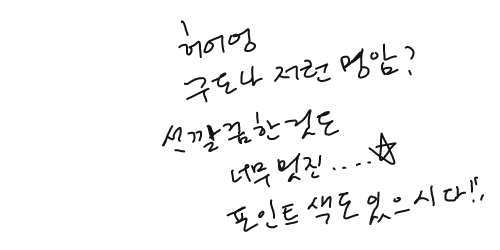 허어엉
구도나 저런 명암?
선깔끔한것도
너무 멋진....☆
포인트 색도 있으시다!!